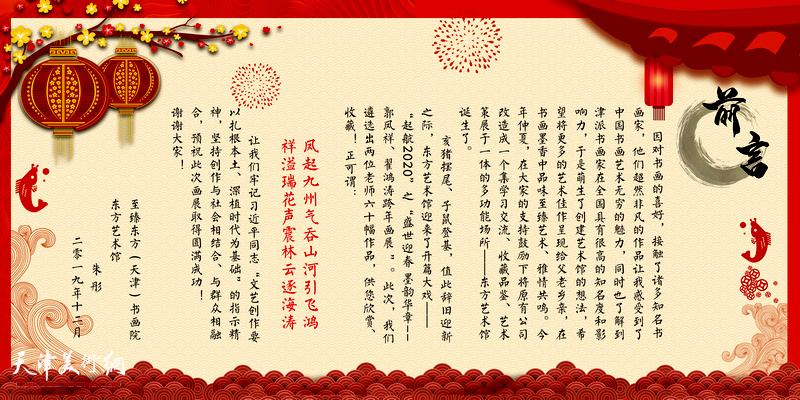 前言
因对书画的喜好，接触了诸多知名书
画家，他们超然非凡的作品让我感受到了
中国书画艺术无穷的魅力，同时也了解到
津派书画家在全国具有很高的知名度和影
响力，于是萌生了创建艺术馆的想法，希
望将更多的艺术佳作呈现给父老乡亲，在
书画墨香中品味至臻艺术，雅情共鸣。今
年仲夏，在大家的支持鼓励下将原有公司
改造成一个集学习交流、收藏品鉴、艺术
策展于一体的多功能场所——东方艺术馆
诞生了。
亥猪摆尾、子鼠登基，值此辞旧迎新
之际，东方艺术馆迎来了开篇大戏——
“起航2020”之“盛世迎春 墨韵华章——
郭凤祥、翟鸿涛跨年画展”。此次，我们
遴选出两位老师六十幅作品，供您欣赏、
收藏！正可谓：
凤起九州气吞山河引飞鸿
祥溢瑞花声震林云逐海涛
让我们牢记习近平同志“文艺创作要
以扎根本土、深植时代为基础”的指示精
神，坚持创作与社会相结合、与群众相融
合，预祝此次画展取得圆满成功！
谢谢大家！
至臻东方（天津）书画院
东方艺术馆
朱彤
二零一九年十二月
天津美術網